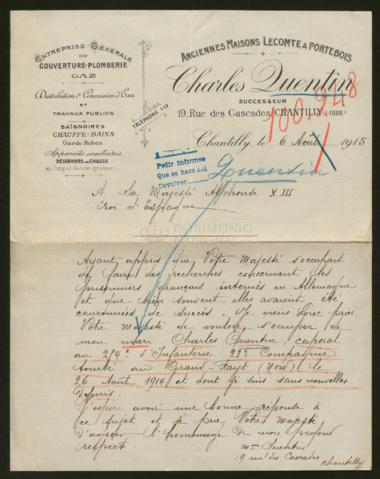 ENTREPRISE GÉNÉRALE
DE
COUVERTURE-PLOMBERIE
GAZ
Distribution & Concession d'Eau
ET
TRAVAUX PUBLICS
BAIGNOIRES
CHAUFFE-BAINS
Garde-Robes
Appareils sanitaires
RÉSERVOIRS DE CHASSE
TÉLÉPHONE
ANCIENNES MAISONS LECOMTE & PORTEBOIS
Charles Quentin
SUCCESSEUR
19, Rue des Cascades, CHANTILLY (OISE)
Chantilly, le 6 Août 1915
Petit informes
Que se haga cui
Quentin
A Sa Majesté Alphonse XIII
roi d'Espagne
PATRIMONIO
Ayant appris que Votre Majesté s'occupait
de faire des recherches concernant les
prisonniers français internés en Allemagne
et que bien souvent elles avaient été
couronnées de succès. Je viens donc prier
Votre Majesté de vouloir s'occuper de
mon mari Charles Quentin caporal
au 284e d'Infanterie 23e Compagnie
tombé au Grand-Fayt (Nord) le
26 Août 1914 et dont je suis sans nouvelles
depuis.
J'espère avoir une bonne réponse à
ce sujet et je prie Votre Majesté
d'agréer l'hommage de mon profond
respect.
Mme Quentin
19 rue des Cascades
Chantilly